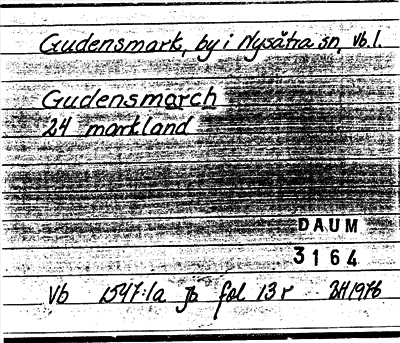 Gudensmark, by i Nysätra sn, Vb l.
Gudensmarch
24 markland
DAUM
3164
Vb 1547:1a Jb fol 13 r BH 1976